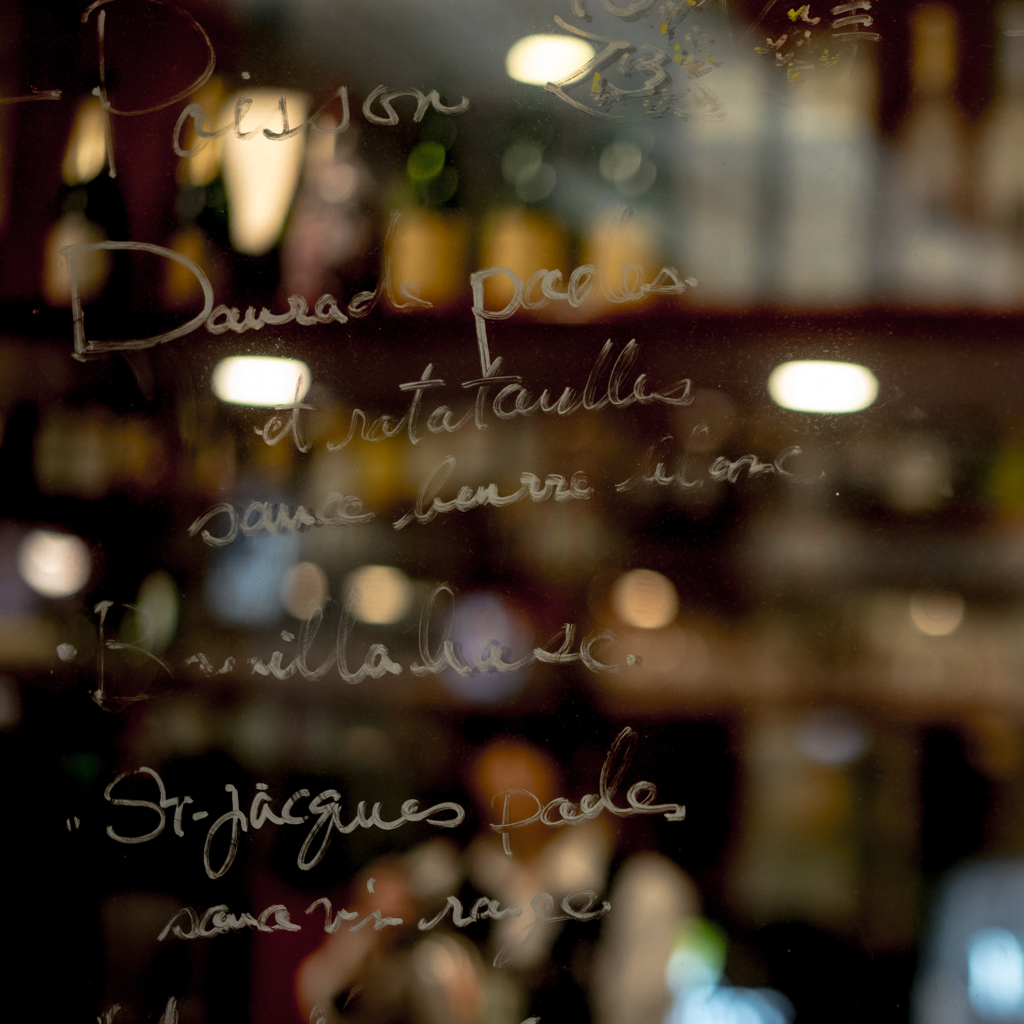 - Poisson
Daurade poeles.
et ratatouilles
sauce beurre blanc.
. Bouillabaisse.
" St-jacques poeles
sauce vin rouge